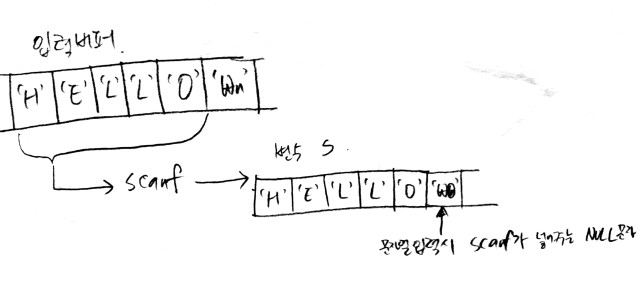 입력버퍼.
'H' 'E' 'L' 'L' 'O' '\n'
scanf
변수 S.
'H' 'E' 'L' 'L' 'O' '\0'
문자열입력시 scanf가 넣어주는 NULL문자